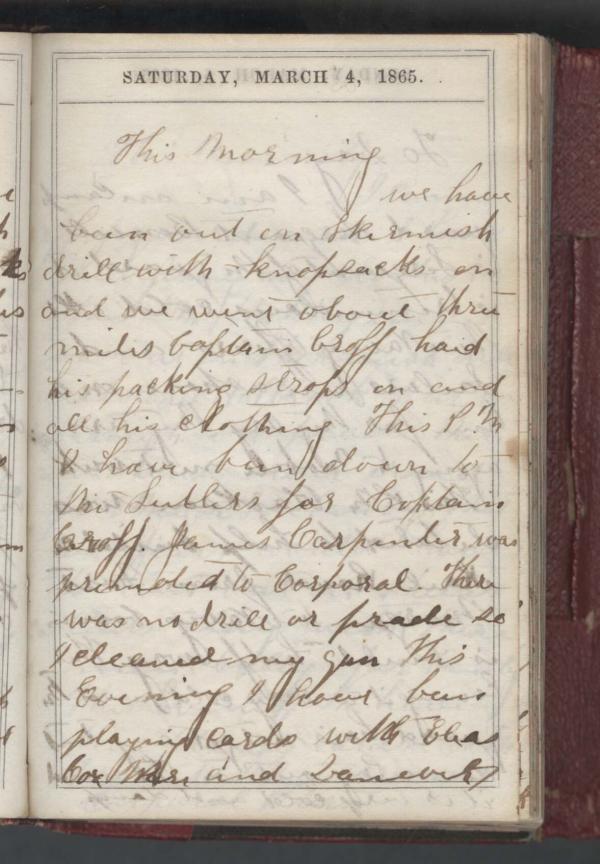 SATURDAY, MARCH 4, 1865.
This Morning
we have
been out on Skirmish
drill with knapsacks on
and we went about three
miles Captain Croff had
his packing straps on and
all his clothing This P.M
I have been down to
the Sutlers for Captain
Croff. James Carpenter was
promoted to Corporal. There
was no drill or prade so
I cleaned my gun This
Evening I have been
playing cards with
and